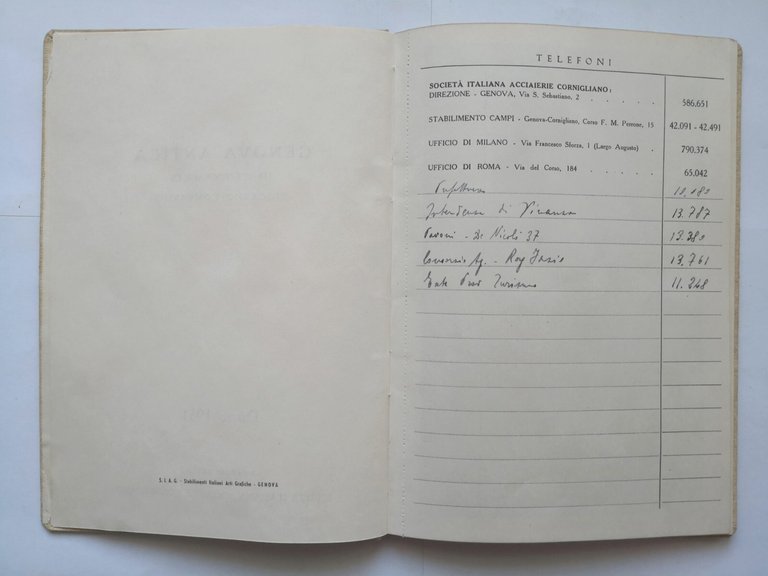 S. I. A. G. - Stabilimenti Italiani Arti Grafiche - GENOVA
TELEFONI
SOCIETÀ ITALIANA ACCIAIERIE CORNIGLIANO:
DIREZIONE - GENOVA, Via S. Sebastiano, 2 . . . . . 586.651
STABILIMENTO CAMPI - Genova-Cornigliano, Corso F. M. Perrone, 15 42.091 - 42.491
UFFICIO DI MILANO - Via Francesco Sforza, 1 (Largo Augusto) . 790.374
UFFICIO DI ROMA - Via del Corso, 184 . . . . . 65.042
Intendenza di Finanza 13.787
De Nicoli 37 13.380
Consorzio Ag. - 13.761
Ente Prov Turismo 11.248